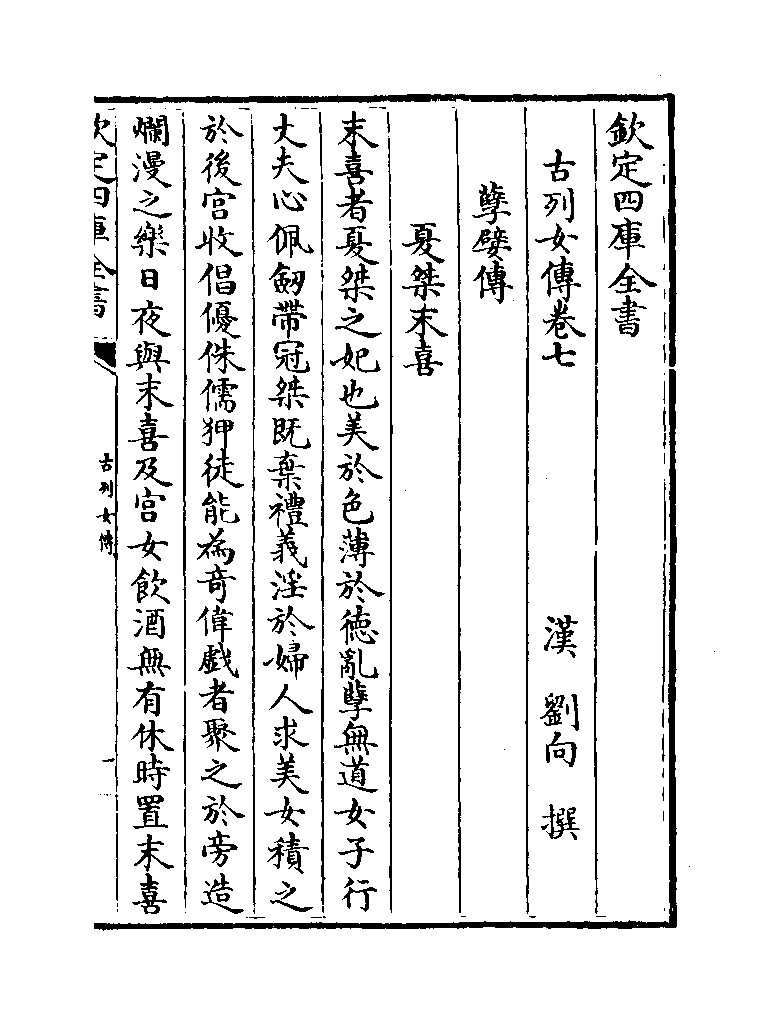 欽定四庫全書
古列女傳卷七
漢 劉向 撰
孽嬖傳
夏桀末喜
末喜者夏桀之妃也美於色薄於德亂孽無道女子行
丈夫心佩劔帶冠桀既棄禮義淫於婦人求美女積之
於後宮收倡優侏儒狎徒能為奇偉戲者聚之於旁造
爛漫之樂日夜與末喜及宮女飲酒無有休時置末喜
欽定四庫全書
古列女傳
一